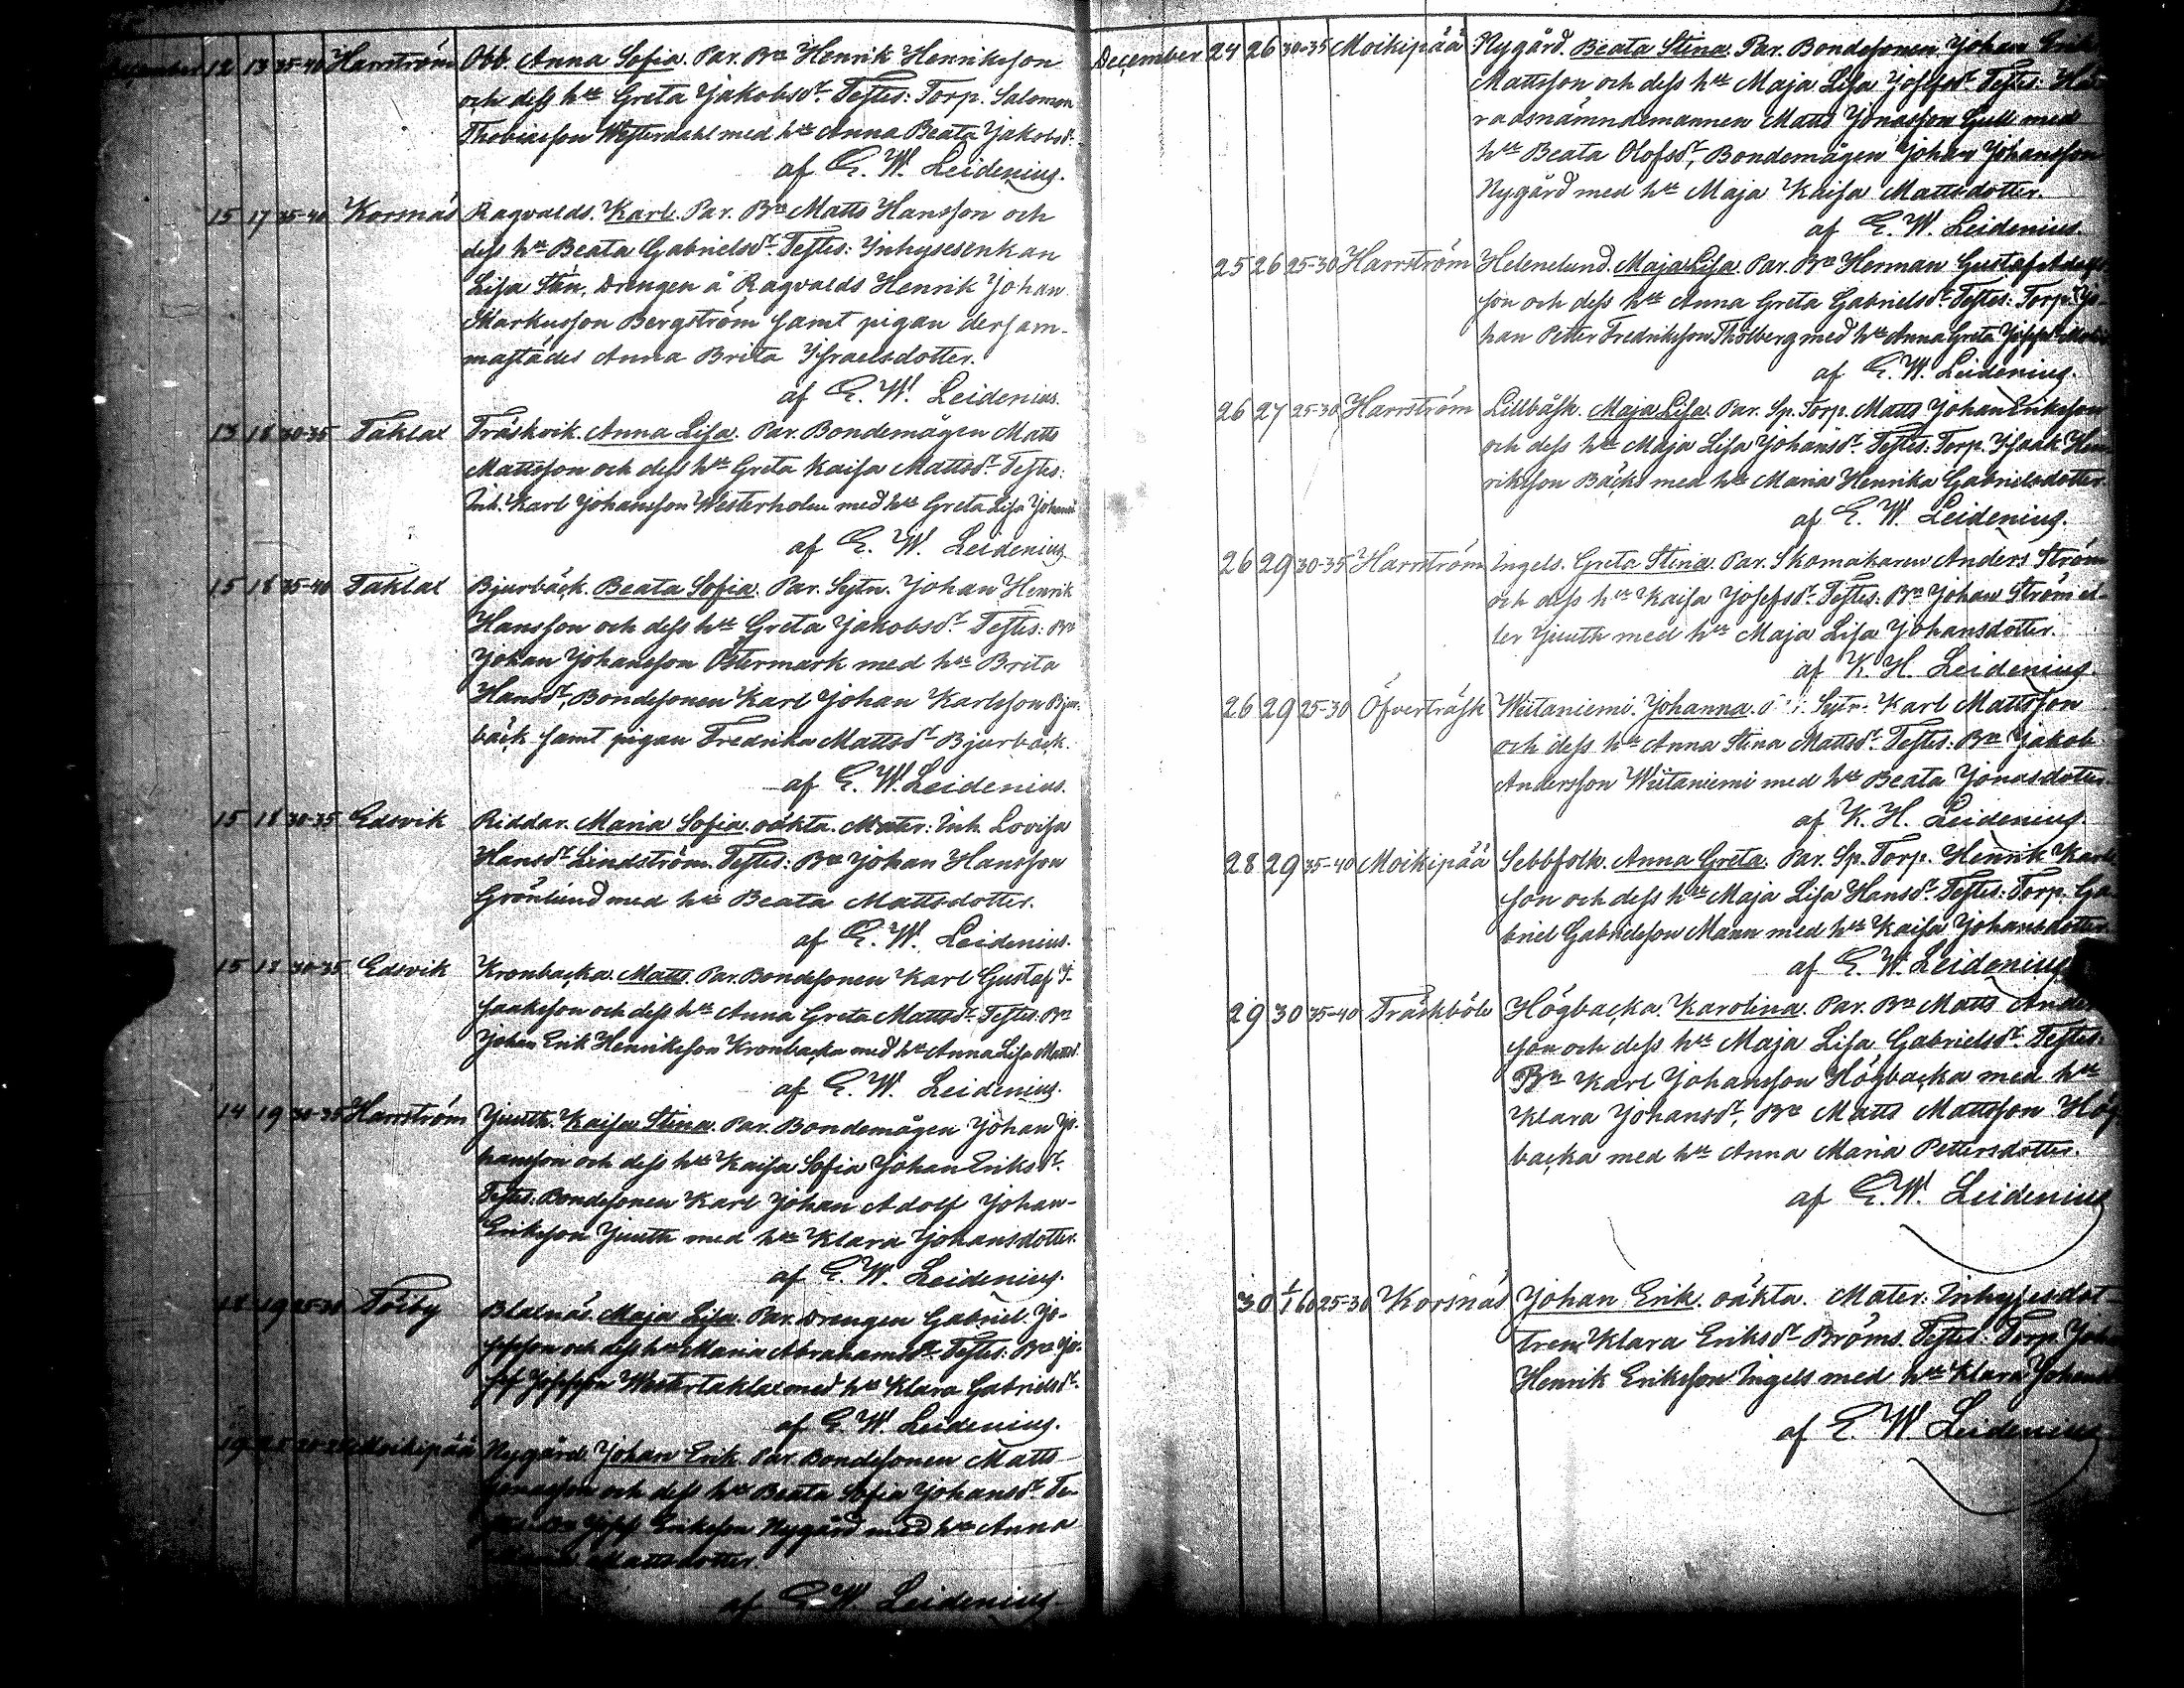 12 13 35-40 Harrström Obb. Anna Sofia. Par. Bn Henrik Henriksson
och dess hu Greta Jakobsdr. Testes: Torp. Salomon
Thobiasson Westerdahl med hu Anna Beata Jakobsdr.
af E. W. Leidenius.
15 17 35-40 Korsnäs Ragvalds. Karl. Par. Bn Matts Hansson och
dess hu Beata Gabrielsdr. Testes: Inhysesenkan
Lisa Stén, Drengen å Ragvalds Henrik Johan
Markusson Bergström samt pigan dersam-
mastädes Anna Brita Israelsdotter.
af E. W. Leidenius.
13 18 30-35 Taklax Träskvik. Anna Lisa. Par. Bondemågen Matts
Mattsson och dess hu Greta Kaisa Mattsdr. Testes:
Inh. Karl Johansson Westerholm med hu Greta Lisa
af E. W. Leidenius
15 18 35-40 Taklax Bjurbäck. Beata Sofia. Par. Sytn. Johan Henrik
Hansson och dess hu Greta Jakobsdr. Testes: Bn
Johan Johansson Östermark med hu Brita
Hansdr, Bondesonen Karl Johan Karlsson Bjur-
bäck samt pigan Fredrika Mattsdr Bjurback.
af E. W. Leidenius.
15 18 30-35 Edsvik Riddar. Maria Sofia. oäkta. Mater: Inh. Lovisa
Hansdr Lindström. Testes: Bn Johan Hansson
Grönlund med hu Beata Mattsdotter.
af E. W. Leidenius.
15 18 30-35 Edsvik Kronbacka. Matts. Par. Bondesonen Karl Gustaf I-
saaksson och dess hu Anna Greta Mattsdr. Testes: Bn
Johan Erik Henriksson Kronbacka med hu Anna Lisa Mattsd.
af E. W. Leidenius.
14 19 30-35 Harrström Juuth. Kaisa Stina. Par. Bondemågen Johan Jo-
hansson och dess hu Kaisa Sofia Johan Eriksdr.
Testes: Bondesonen Karl Johan Adolf Johan-
Eriksson Juuth med hu Klara Johansdotter.
af E. W. Leidenius.
18 19 25-30 Töiby Blaxnäs. Maja Lisa. Par. Drengen Gabriel Jo-
sefsson och dess hu Maria Abrahamsdr. Testes: Bn Jo-
sef Josefsson Westertaklax med hu Klara Gabrielsdr.
af E. W. Leidenius.
19 Moikipää Nygård. Johan Erik. Par. Bondesonen Matts
Jonasson och dess hu Beata Sofia Johansdr. Tes-
Bn Josef Eriksson Nygård med hu Anna
Mattsdotter.
af E. W. Leidenius
December 24 26 30-35 Moikipää Nygård. Beata Stina. Par. Bondesonen Johan Erik
Mattsson och dess hu Maja Lisa Josefsdr. Testes: Hä-
radsnämndemannen Matts Jonasson Gull med
hu Beata Olofsdr, Bondemågen Johan Johansson
Nygård med hu Maja Kaisa Mattsdotter.
af E. W. Leidenius.
25 26 25-30 Harrström Helenelund. Maja Lisa. Par. Bn Herman Gustaf
son och dess hu Anna Greta Gabrielsdr. Testes: Torp. Jo-
han Petter Fredriksson Thölberg med hu Anna Greta
af E. W. Leidenius.
26 27 25-30 Harrström Lillbåsk. Maja Lisa. Par. Sp. Torp. Matts Johan Eriksson
och dess hu Maja Lisa Johansdr. Testes: Torp. Isaak Hen-
riksson Bäck med hu Maria Henrika Gabrielsdotter.
af E. W. Leidenius.
26 29 30-35 Harrström Ingels. Greta Stina. Par. Skomakaren Anders Ström
och dess hu Kaisa Josefsdr. Testes: Bn Johan Ström el-
ler Juuth med hu Maja Lisa Johansdotter.
af K. H. Leidenius.
26 29 25-30 Öfverträsk Wiitaniemi. Johanna. Sytn. Karl Mattsson
och dess hu Anna Stina Mattsdr. Testes: Bn Jakob
Andersson Wiitaniemi med hu Beata Jonasdotter.
af K. H. Leidenius.
28 29 35-40 Moikipää Sebbfolk. Anna Greta. Par. Sp. Torp. Henrik Karls-
son och dess hu Maja Lisa Hansdr. Testes: Torp. Ga-
briel Gabrielsson Mann med hu Kaisa Johansdotter.
af E. W. Leidenius
29 30 35-40 Träskböle Högbacka. Karolina. Par. Bn Matts Anders-
son och dess hu Maja Lisa Gabrielsdr. Testes:
Bn Karl Johansson Högbacka med hu
Klara Johansdr, Bn Matts Mattsson Hög-
backa med hu Anna Maria Pettersdotter.
af E. W. Leidenius
30 1/1 60 25-30 Korsnäs Johan Erik. oäkta. Mater: Inhysesdot-
tren Klara Eriksdr Broms. Testes: Torp. Johan
Henrik Eriksson Ingels med hu Klara Johansd
af E. W. Leidenius